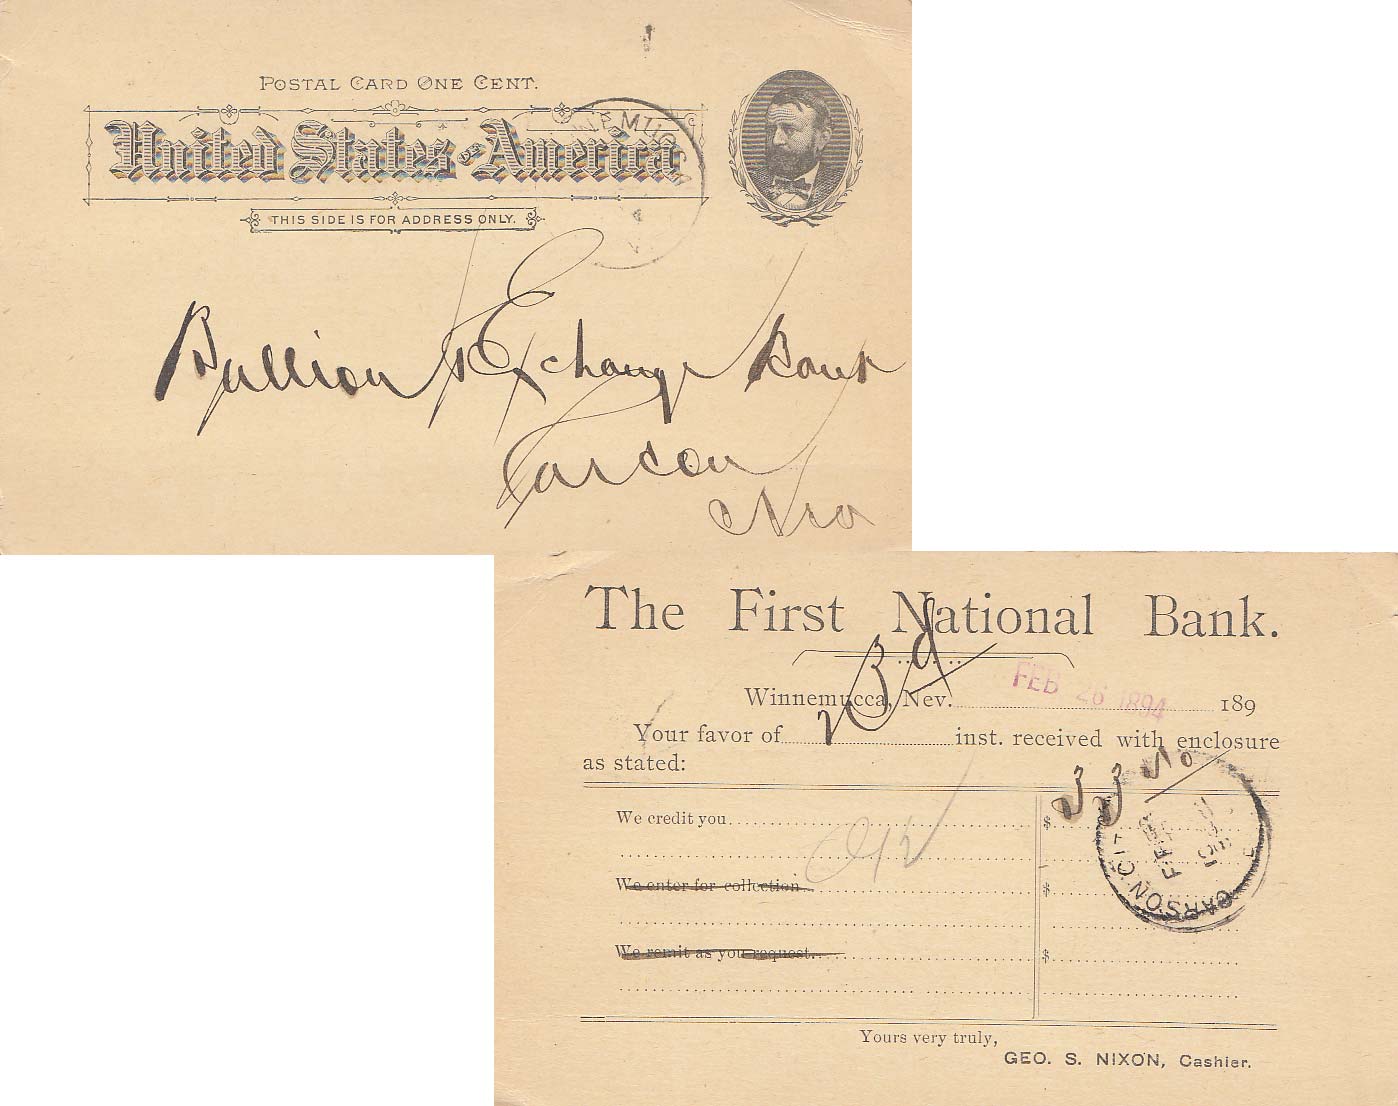 POSTAL CARD ONE CENT.
United States of America
THIS SIDE IS FOR ADDRESS ONLY.
Bullion & Exchange Bank
Carson
Nev
The First National Bank.
Winnemucca, Nev. FEB 26 1894 189
Your favor of 23d inst. received with enclosure
as stated:
We credit you $ 33
We enter for collection $
We remit as you request $
CARSON CITY
FEB
Yours very truly,
GEO. S. NIXON, Cashier.